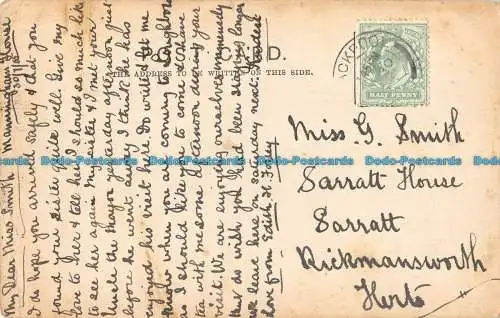 POST CARD.
THE ADDRESS TO BE WRITTEN ON THIS SIDE.
HALF PENNY
Miss G. Smith
Sarratt House
Sarratt
Rickmansworth
Herts
Manningham House
30/1/10
My Dear Miss Smith
I do hope you arrived safely & that you
found your sister quite well. Give my
love to her & tell her I should so much like
to see her again. My sister & I met your
Uncle the Mayor yesterday afternoon just
before he went away. I think he has
enjoyed his visit here. Do write & let me
know when you are coming to Loughboro
as I should like you to come & have
tea with me some afternoon during your
visit. We are enjoying ourselves immensely
& do wish you had been staying longer
We leave here on Saturday next. Kindest
love from Edith St.
Dodo-Postcards.com